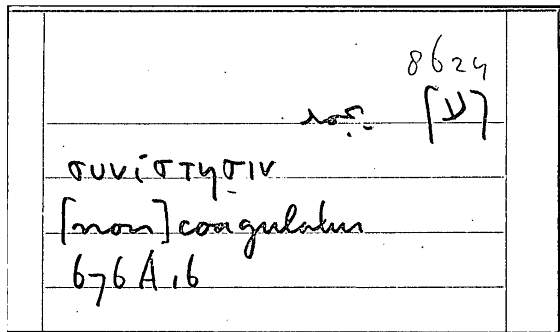 8624
[V]
συνίστησιν
[non] coagulatur
676 A.6